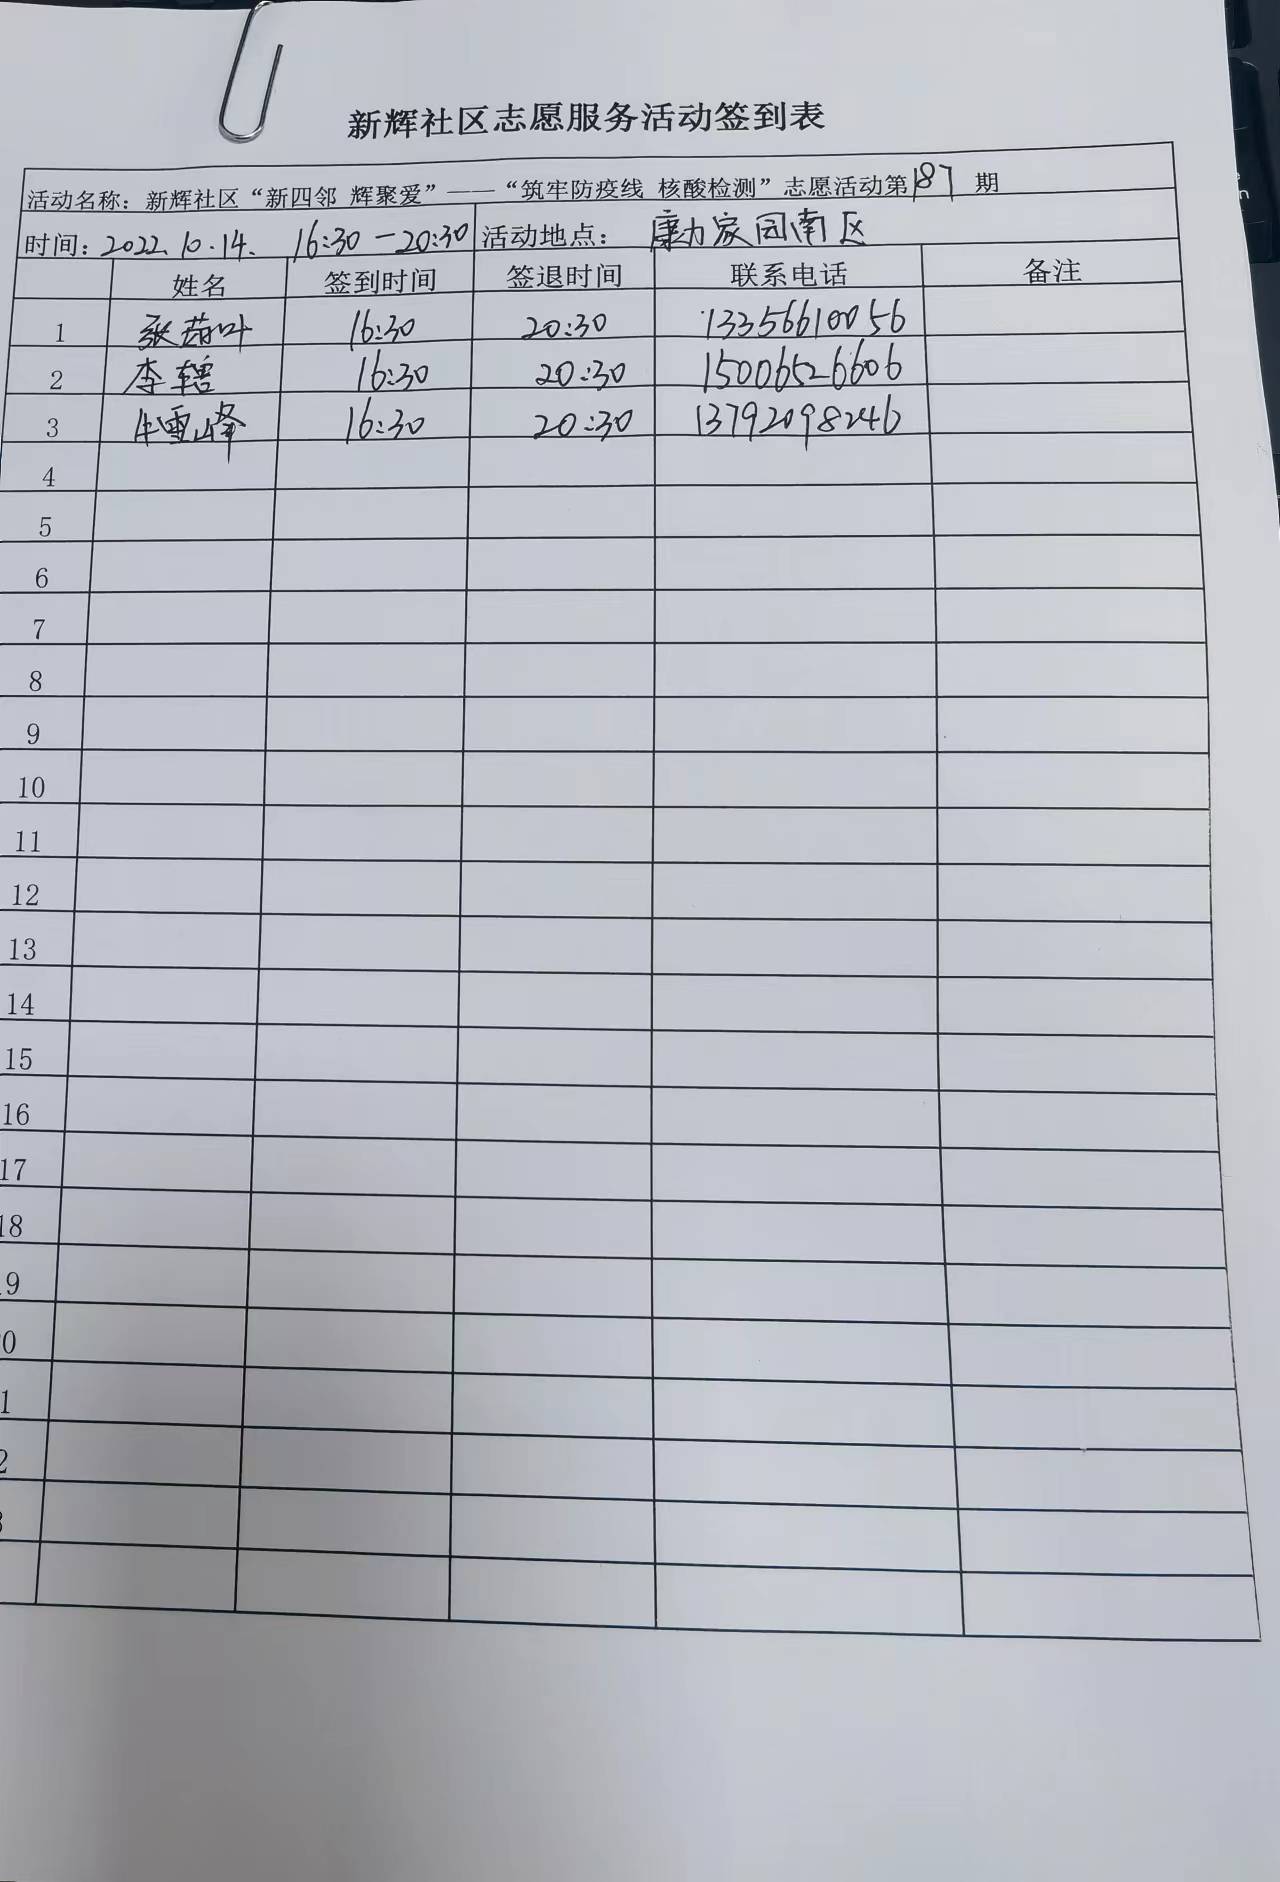 新辉社区志愿服务活动签到表
活动名称：新辉社区“新四邻 辉聚爱”——“筑牢防疫线 核酸检测”志愿活动第187期
时间：2022.10.14. 16:30-20:30 活动地点：康力家园南区
姓名 签到时间 签退时间 联系电话 备注
1 张茜叶 16:30 20:30 13356610056
2 李辖 16:30 20:30 15006526606
3 牛雪峰 16:30 20:30 13792098246
4
5
6
7
8
9
10
11
12
13
14
15
16
17
18
9
0
1
2
3